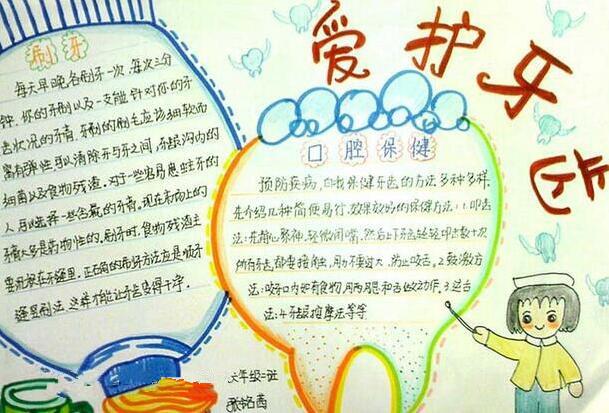 爱护牙齿
刷牙
每天早晚各刷牙一次,每次三分
钟,你的牙刷以及一支能针对你的牙
齿状况的牙膏,牙刷的刷毛应该细软而
富有弹性可以清除牙与牙之间,牙龈沟内的
细菌以及食物残渣,对于一些易患蛀牙的
人可以选择一些含氟的牙膏,现在市场上的
牙膏大多是药物性的,刷牙时,食物残渣主
要残状在牙缝里,正确的刷牙方法应是顺牙
缝里刷法,这样才能让牙齿变得干净。
口腔保健
预防疾病,自我保健牙齿的方法多种多样,
先介绍几种简便易行,效果较好的保健方法:1.叩齿
法:先静心聚神,轻微闭嘴,然后上下牙齿轻轻叩击数十次
所有牙齿都要接触,用力不要过大,防止咬舌。2.鼓漱方
法:咬牙口内如有食物,用两腮和舌做动作。3.运舌
法:4.牙龈按摩法等等
六年级一班
张铭茜